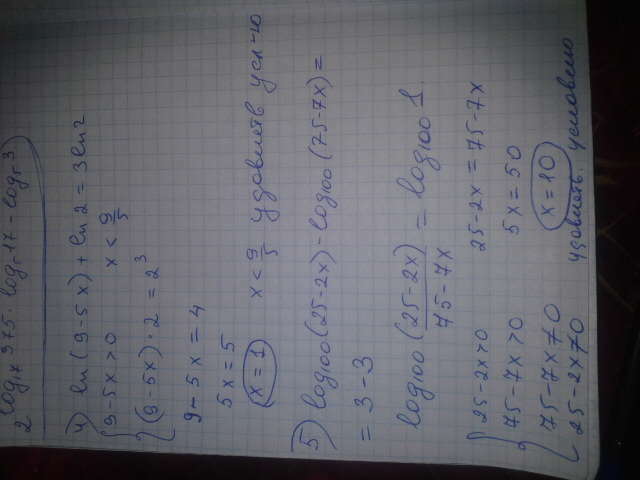 2 log₁₇ 975 · log₅ 17 - log₅ 3
4) ln(9-5x) + ln 2 = 3 ln 2
9-5x>0 x < 9/5
(9-5x)·2 = 2³
9-5x = 4
5x = 5
x = 1 x < 9/5 удовлетв усл-ю
5) log₁₀₀(25-2x) - log₁₀₀(75-7x) =
= 3-3
log₁₀₀ (25-2x)/75-7x = log₁₀₀ 1
25-2x>0 25-2x = 75-7x
75-7x>0 5x = 50
75-7x≠0 x = 10
25-2x≠0 удовлетв. условию